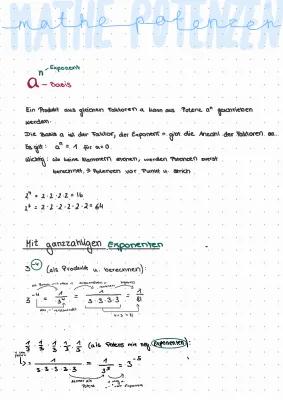 MATHE POTENZEN
mathe potenzen
n - Exponent
a - Basis
Ein Produkt aus gleichen Faktoren a kann als Potenz aⁿ geschrieben
werden.
Die Basis a ist der Faktor, der Exponent n gibt die Anzahl der Faktoren an.
Es gilt: a⁰ = 1 für a≠0.
Wichtig: da keine Klammern stehen, werden Potenzen zuerst
berechnet, → Potenzen vor Punkt u. Strich
2⁴ = 2·2·2·2 = 16
2⁶ = 2·2·2·2·2·2 = 64
Mit ganzzahligen Exponenten
3⁻⁴ (als Produkt u. berechnen):
3⁻⁴ = 1/3⁴ = 1/3·3·3·3 = 1/81
1/3 · 1/3 · 1/3 · 1/3 · 1/3 (als Potenz mit neg. Exponenten):
= 1/3·3·3·3·3 = 1/3⁵ = 3⁻⁵